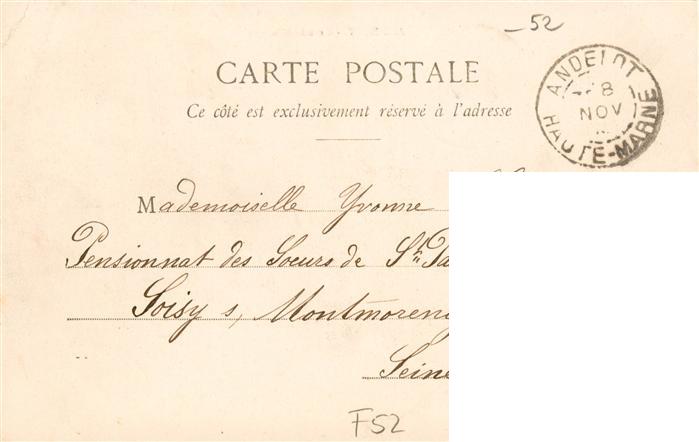 52
CARTE POSTALE
Ce côté est exclusivement réservé à l'adresse
ANDELOT
8
NOV
HAUTE-MARNE
Mademoiselle Yvonne
Pensionnat des Soeurs de St
Soisy s, Montmoren
Seine
F52